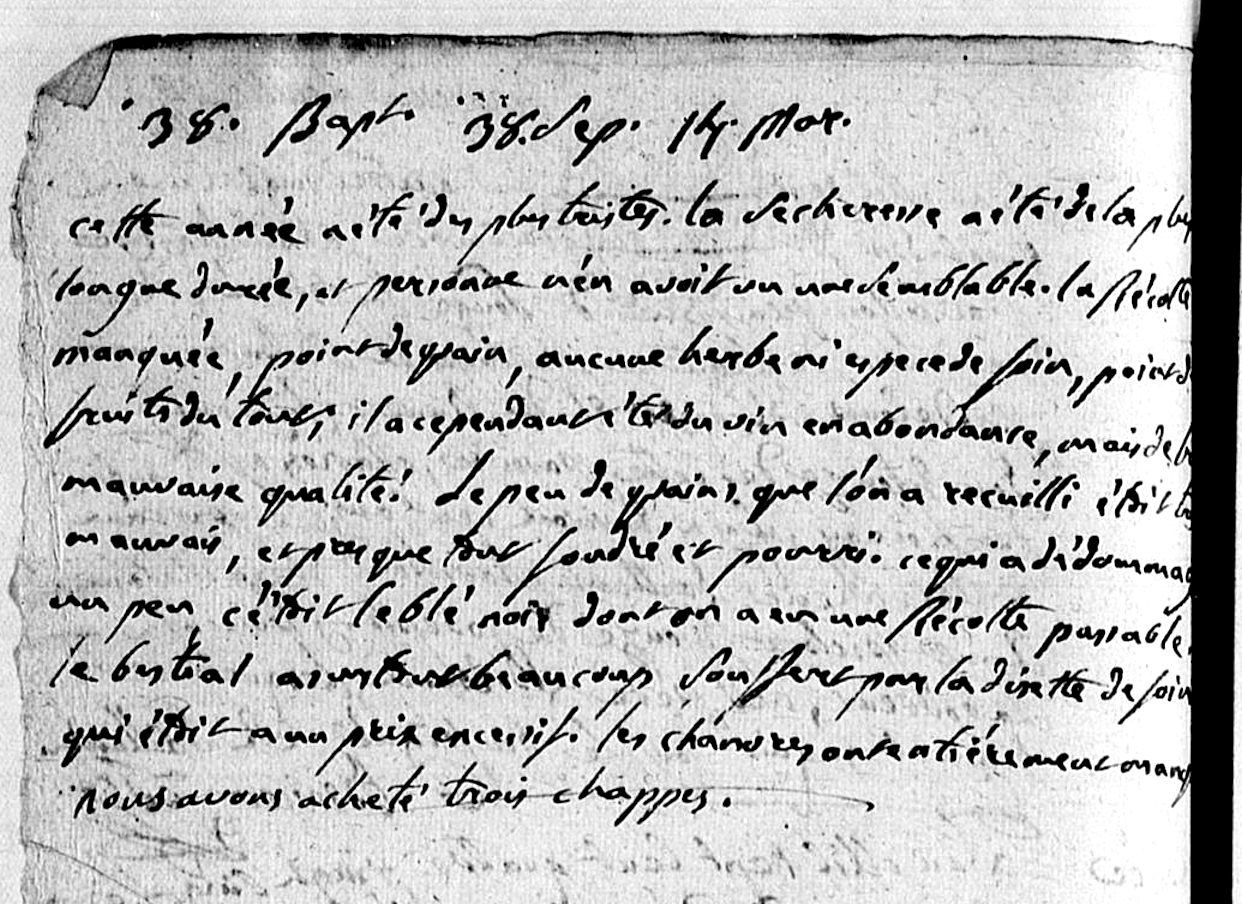 38. Bapt. 38. Sep. 14. Mar.
cette année a été des plus tristes. la secheresse a été de la plus
longue durée, et personne n'en avoit vu une semblable. la Récolte
manquée, point de grain, aucune herbe ni espece de foin, point de
fruits du tout, il a cependant été du vin en abondance, mais de
mauvaise qualité. Le peu de grains que l'on a recuilli étoit
mauvais, et presque tout foudré et pourri. ce qui a dédommag
un peu c'étoit le blé noir dont on a eu une Récolte passable.
le bestial a surtout beaucoup souffert par la disette de foin
qui étoit a un prix excessif. les chanvres ont entatiérement manq
nous avons acheté trois chappes.